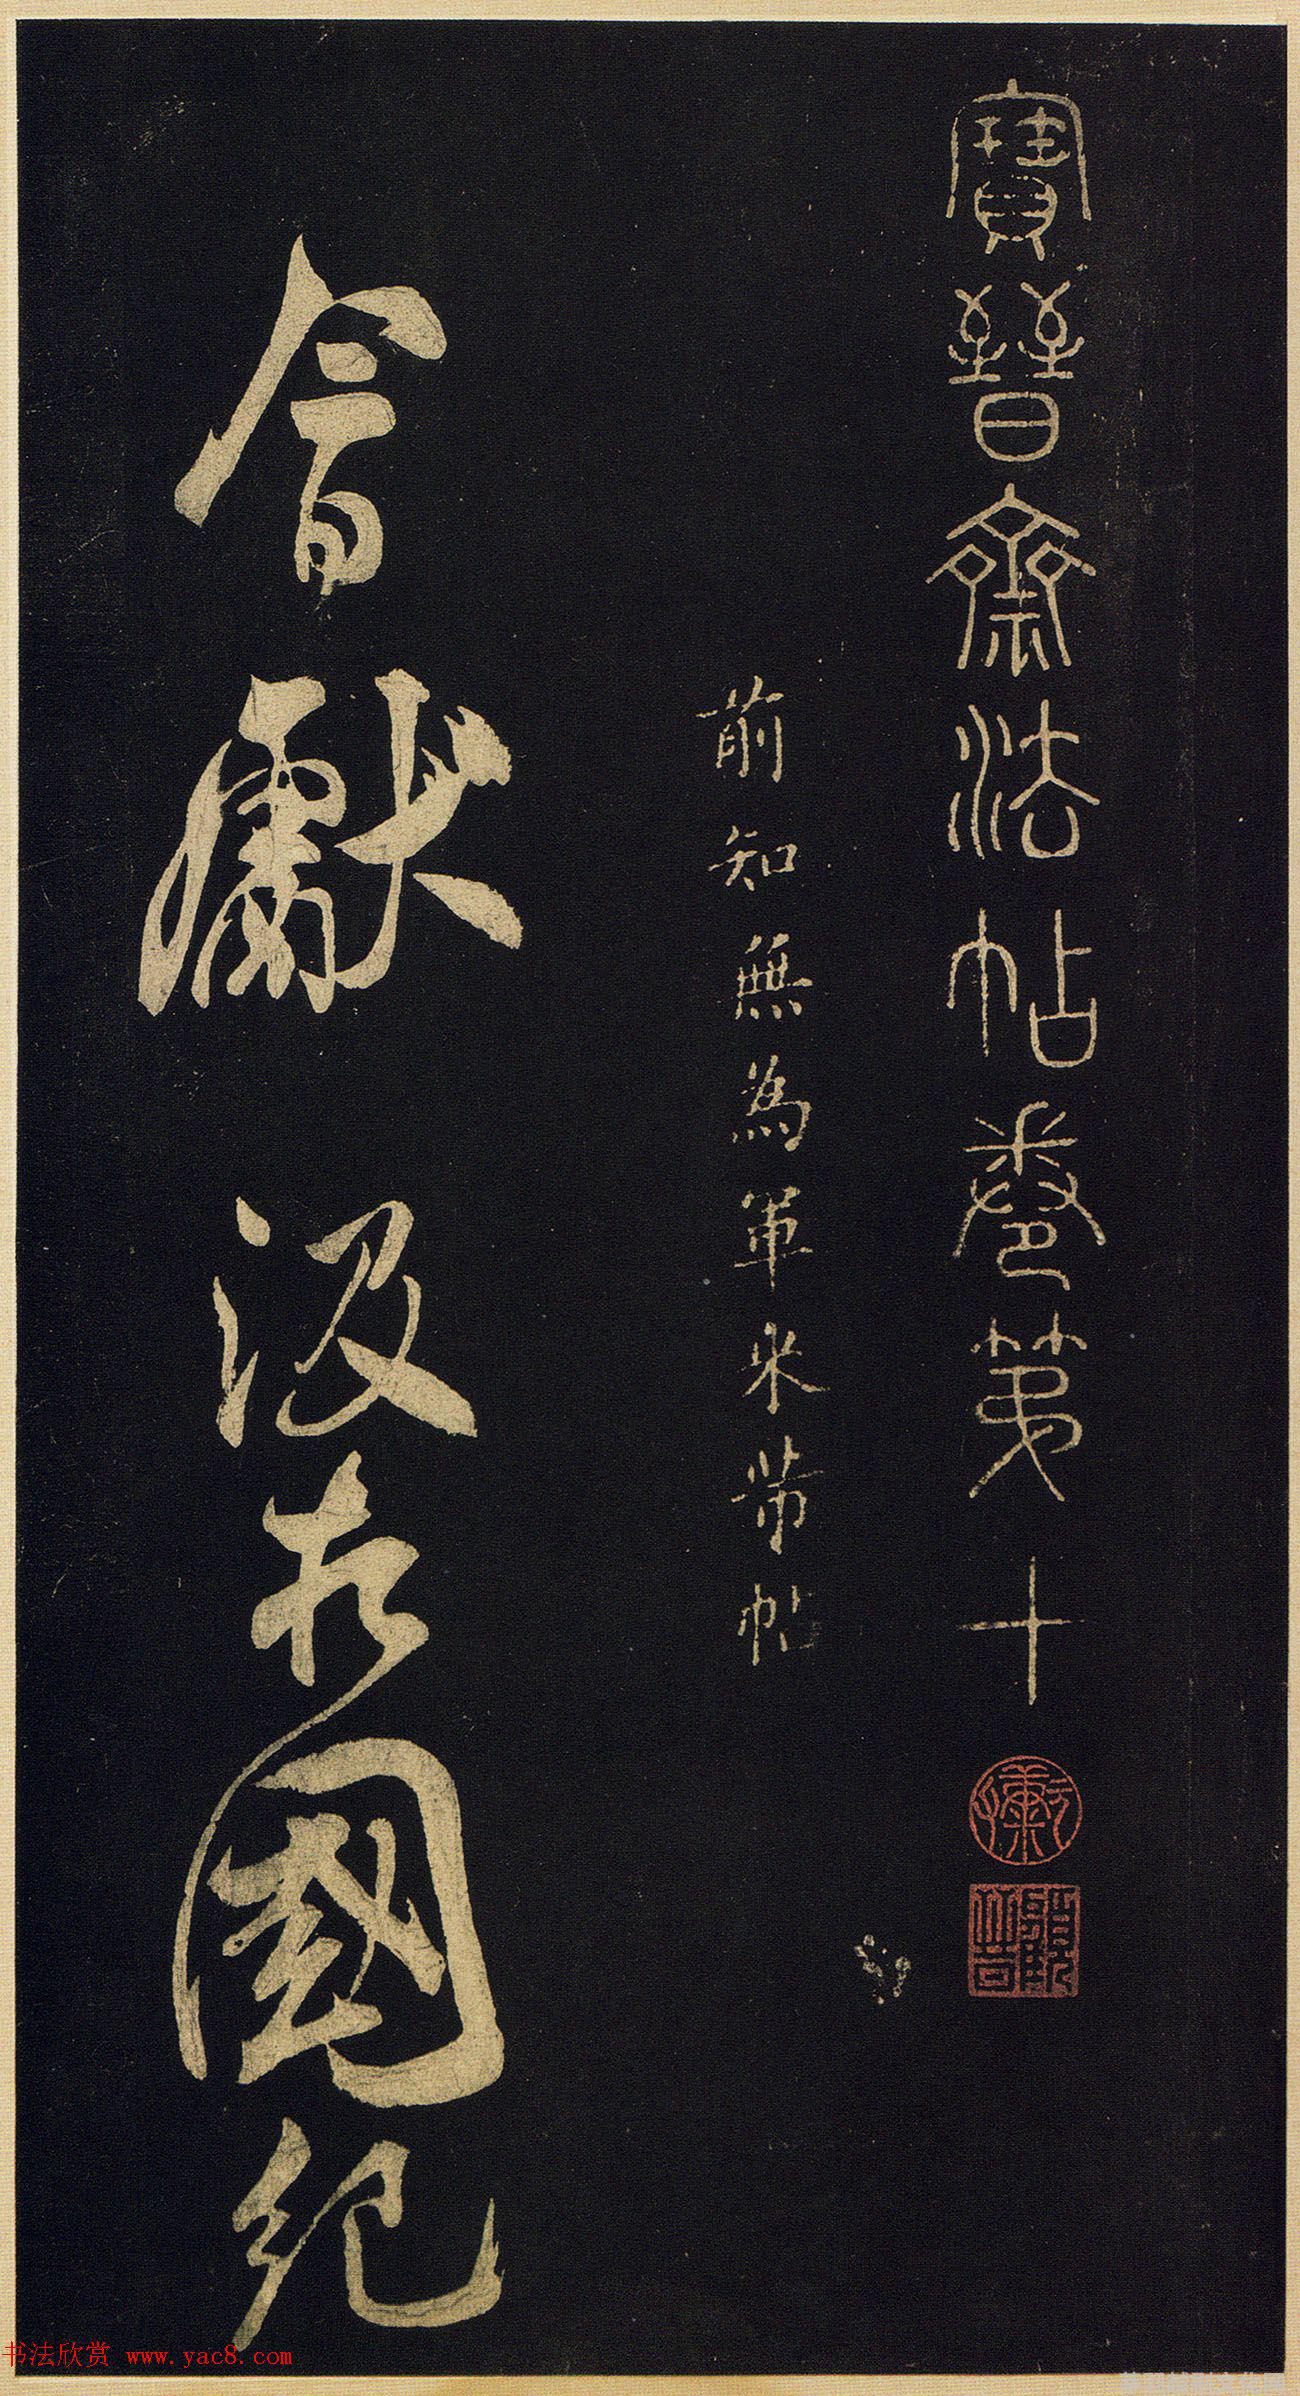 寶晉齋法帖卷第十
前知無為軍米芾帖
會獻汲國紀
书法欣赏 www.yac8.com